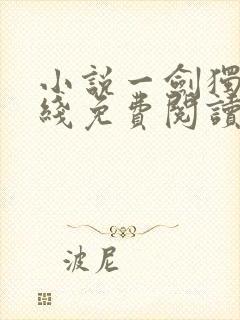 小說一劍獨
綫免費閱讀
波尼